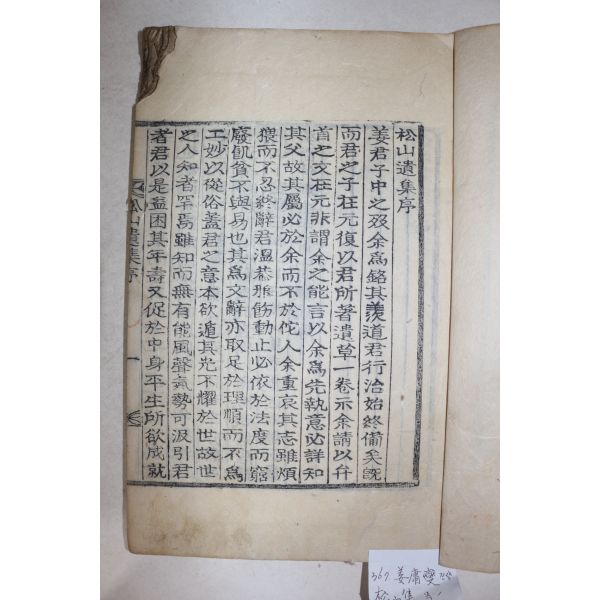 松山遺集序
姜君子中之歿余爲銘其羨道君行治始終備矣旣
而君之子在元復以君所著遺草一卷示余請以弁
首之文在元非謂余之能言以余爲先執意必詳知
其父故其屬必於余而不於佗人余重哀其志雖煩
猥而不忍終辭君溫恭雅飭動止必依於法度而窮
廢飢貧不與易也其爲文辭亦取足於理順而不爲
工妙以從俗蓋君之意本欲遁其光不耀於世故世
之人知者罕焉雖知而無有能風聲氣勢可汲引君
者君以是益困其年壽又促於中身平生所欲成就
松山遺集序
一
367 姜庸燮